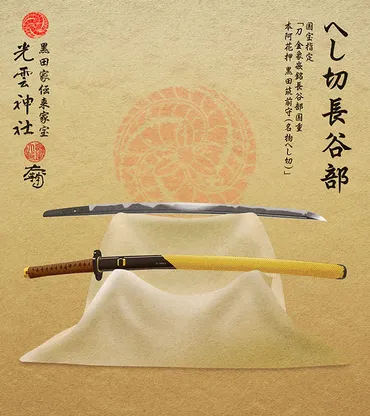 へし切長谷部
国宝指定
「刀 金象嵌銘長谷部国重
本阿花押 黒田筑前守(名物へし切)」
黒田家伝来家宝
光雲神社